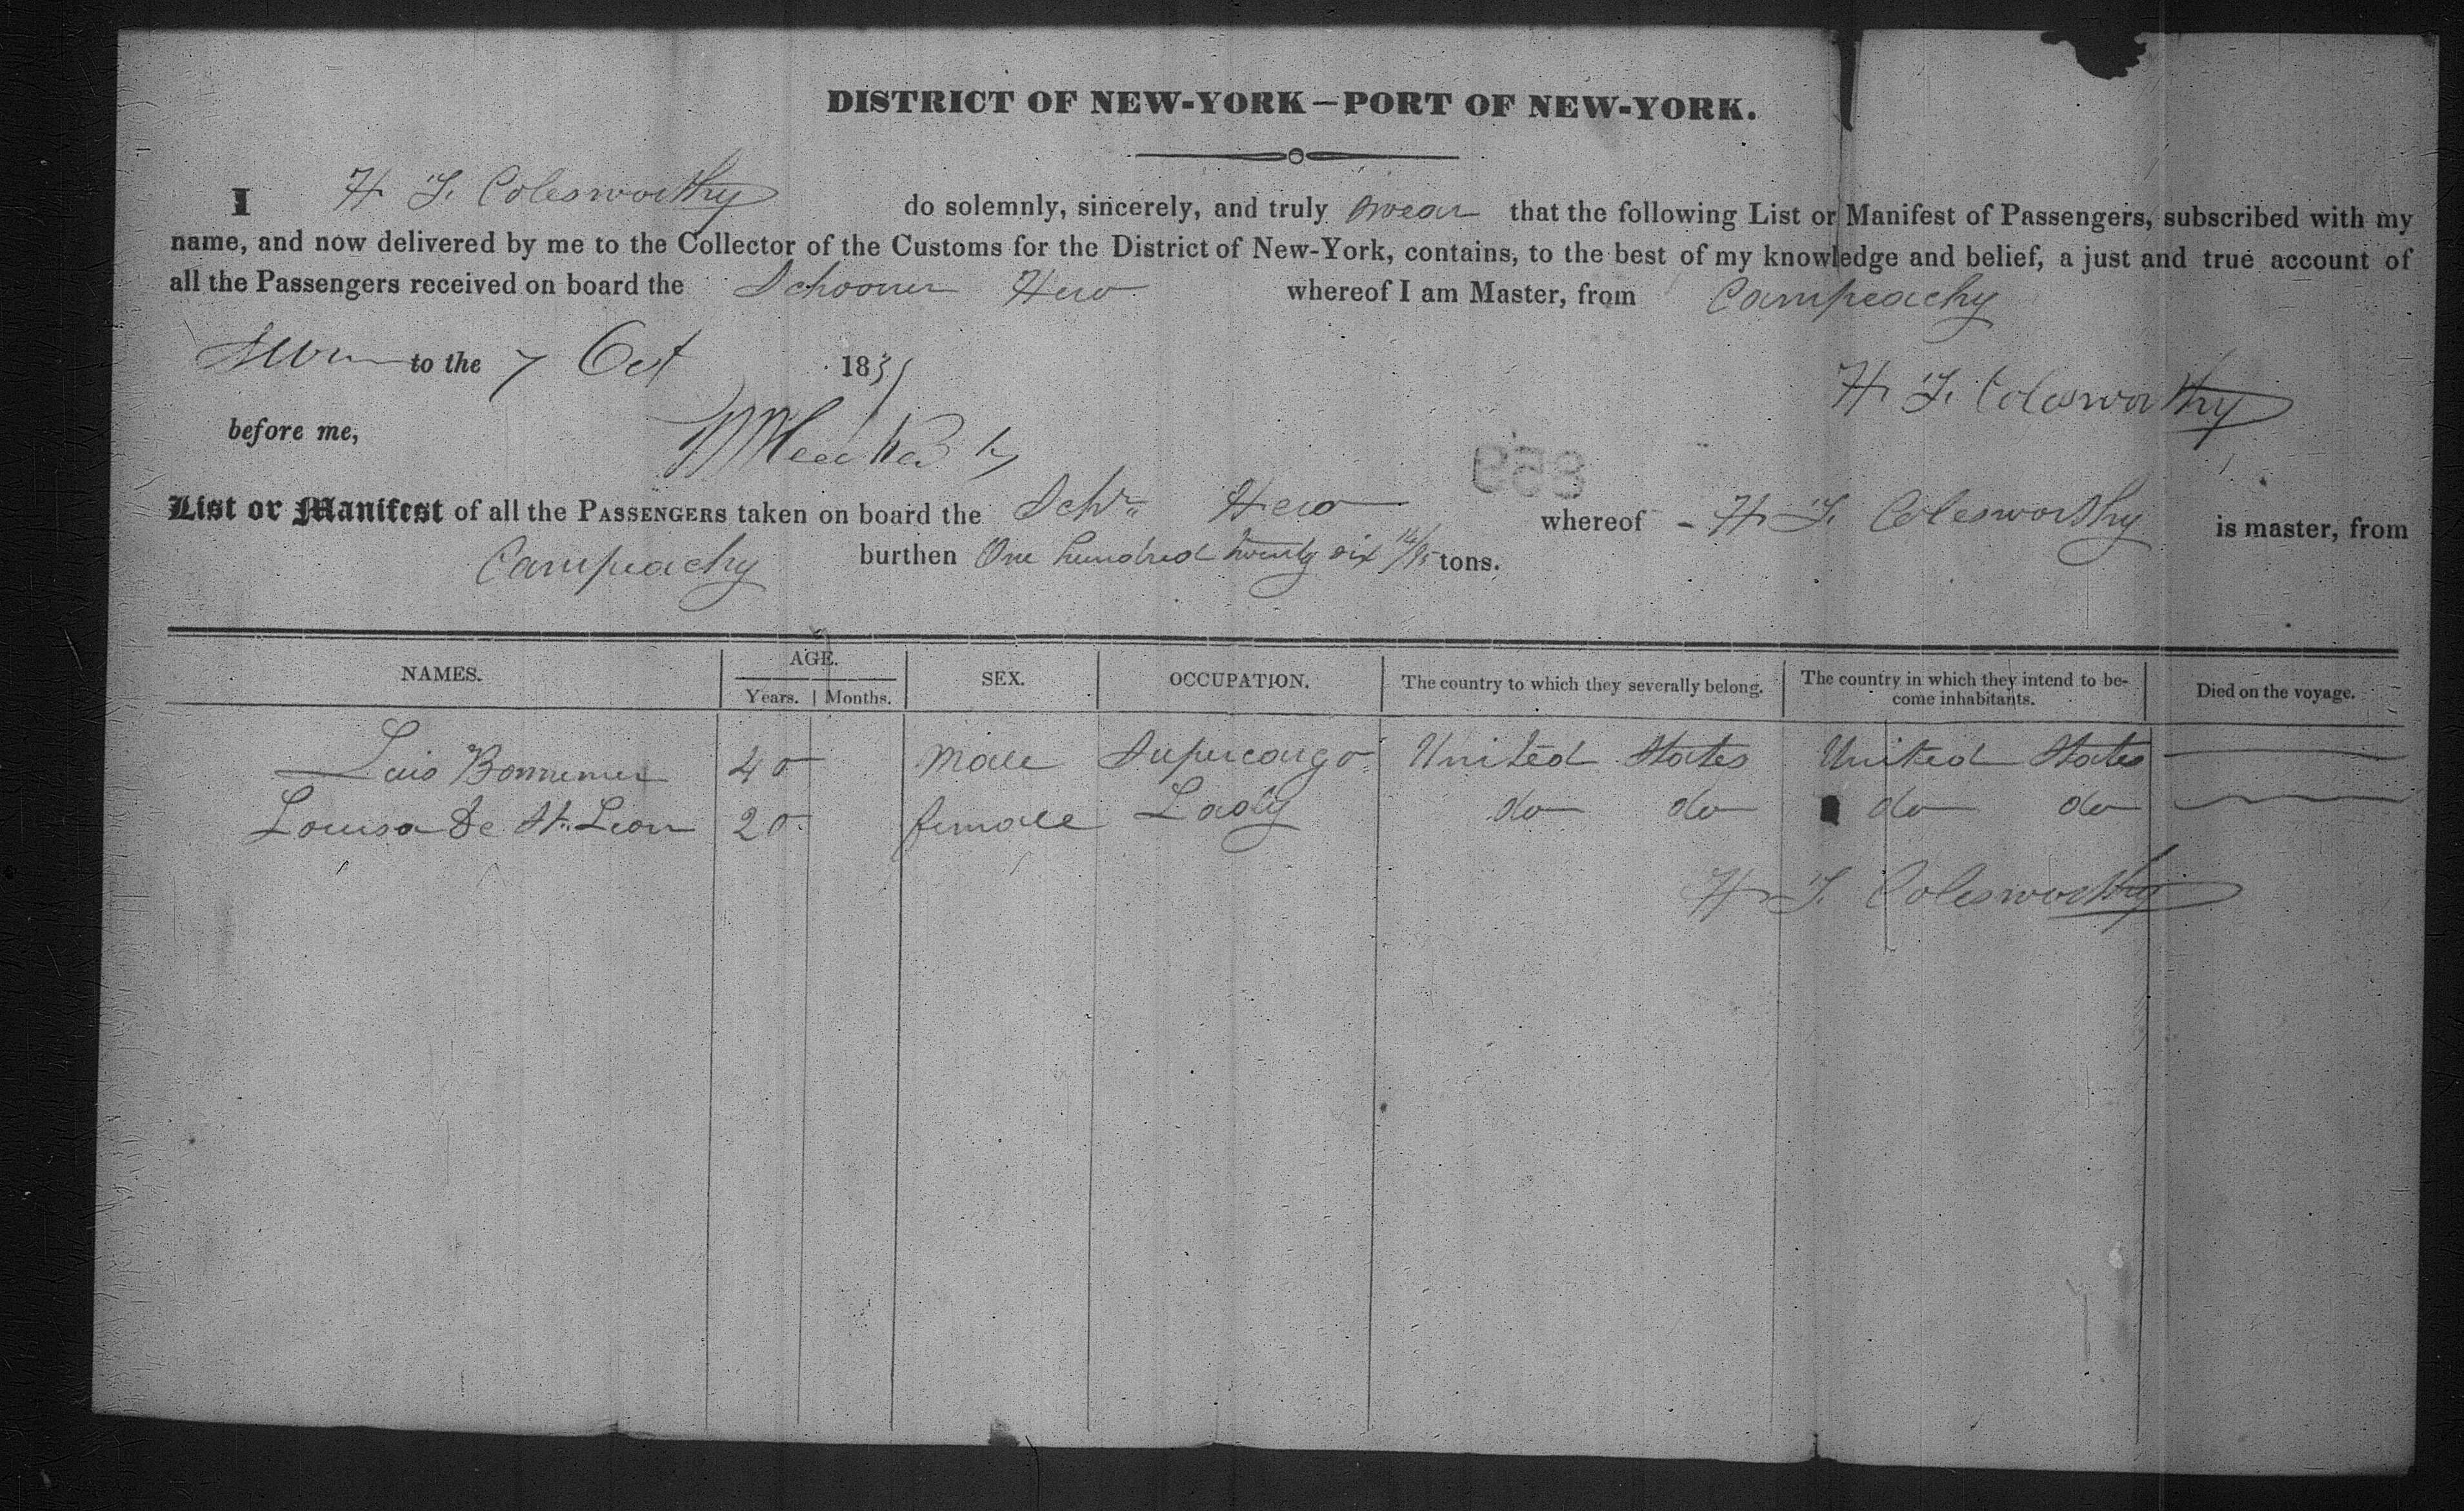 DISTRICT OF NEW-YORK—PORT OF NEW-YORK.
I H F. Colesworthy do solemnly, sincerely, and truly swear that the following List or Manifest of Passengers, subscribed with my
name, and now delivered by me to the Collector of the Customs for the District of New-York, contains, to the best of my knowledge and belief, a just and true account of
all the Passengers received on board the Schooner Hero whereof I am Master, from Campeachy
Sworn to the 7 Oct 183
H F. Colesworthy
before me,
List or Manifest of all the PASSENGERS taken on board the Schr Hero whereof - H F. Colesworthy is master, from
Campeachy burthen One hundred twenty six 14/95 tons.
NAMES. AGE. SEX. OCCUPATION. The country to which they severally belong. The country in which they intend to be-
come inhabitants. Died on the voyage.
Years. Months.
Luis 40 Male Supercargo United States United States
Louisa De St. Leon 20 female Lady do do do do
H F. Colesworthy